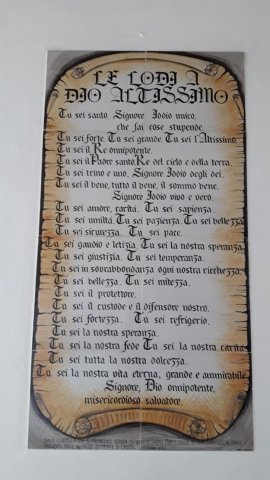 LE LODI A
DIO ALTISSIMO
Tu sei santo, Signore Iddio unico,
che fai cose stupende.
Tu sei forte. Tu sei grande. Tu sei l'Altissimo.
Tu sei il Re onnipotente.
Tu sei il Padre santo, Re del cielo e della terra.
Tu sei trino e uno, Signore Iddio degli dei.
Tu sei il bene, tutto il bene, il sommo bene,
Signore Iddio vivo e vero.
Tu sei amore, carità. Tu sei sapienza.
Tu sei umiltà. Tu sei pazienza. Tu sei bellezza.
Tu sei sicurezza. Tu sei pace.
Tu sei gaudio e letizia. Tu sei la nostra speranza.
Tu sei giustizia. Tu sei temperanza.
Tu sei in sovrabbondanza ogni nostra ricchezza.
Tu sei bellezza. Tu sei mitezza.
Tu sei il protettore.
Tu sei il custode e il difensore nostro.
Tu sei fortezza. Tu sei refrigerio.
Tu sei la nostra speranza.
Tu sei la nostra fede. Tu sei la nostra carità.
Tu sei tutta la nostra dolcezza.
Tu sei la nostra vita eterna, grande e ammirabile
Signore, Dio onnipotente,
misericordioso salvatore.